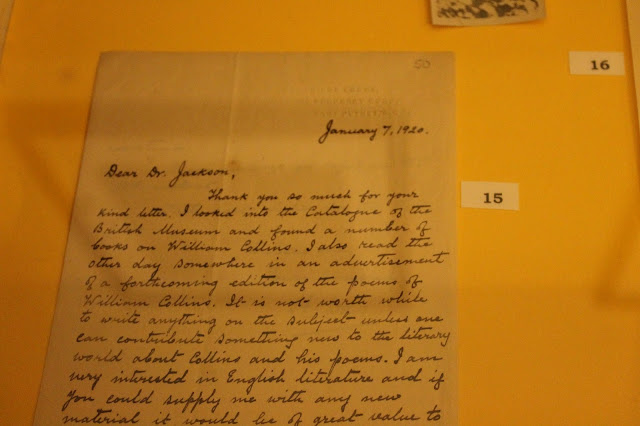 50
16
January 7, 1920.
15
Dear Dr. Jackson,
Thank you so much for your
kind letter. I looked into the Catalogue of the
British Museum and found a number of
books on William Collins. I also read the
other day somewhere in an advertisement
of a forthcoming edition of the poems of
William Collins. It is not worth while
to write anything on the subject unless one
can contribute something new to the literary
world about Collins and his poems. I am
very interested in English literature and if
you could supply me with any new
material it would be of great value to